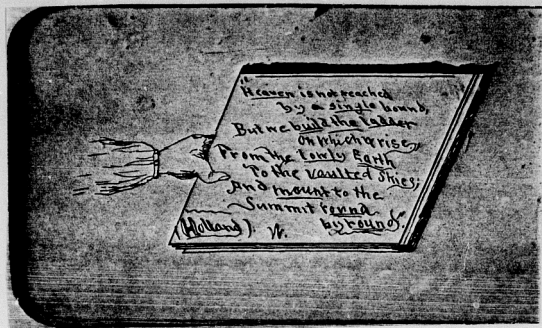 "Heaven is not reached
by a single bound,
But we build the ladder
on which we rise,
From the lowly Earth
To the vaulted skies;
And mount to the
Summit round
by round."
(Holland). W.